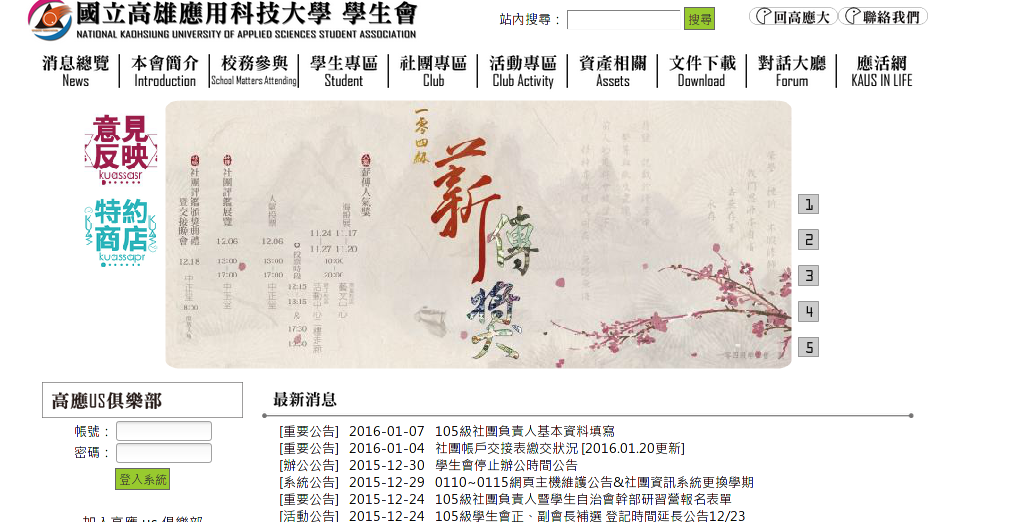 國立高雄應用科技大學 學生會
NATIONAL KAOHSIUNG UNIVERSITY OF APPLIED SCIENCES STUDENT ASSOCIATION
站內搜尋：
搜尋
回高應大
聯絡我們
消息總覽 本會簡介 校務參與 學生專區 社團專區 活動專區 資產相關 文件下載 對話大廳 應活網
News Introduction School Matters Attending Student Club Club Activity Assets Download Forum KAUS IN LIFE
意見
反映
kuassasr
特約
商店
kuassapr
一零四級
薪傳獎
薪傳人氣獎
海報展
11.17
11.20
11.24
11.27
藝文中心
活動中心
投票時段
12:15
13:15
&
17:30
人氣投票
12.06
13:00
17:00
中正堂
社團評鑑展覽
12.06
13:00
17:00
中正堂
社團評鑑頒獎典禮
暨交接晚會
12.18
中正堂
1
2
3
4
5
高應US俱樂部
帳號：
密碼：
登入系統
加入高應 us 俱樂部
最新消息
[重要公告] 2016-01-07 105級社團負責人基本資料填寫
[重要公告] 2016-01-04 社團帳戶交接表繳交狀況 [2016.01.20更新]
[辦公公告] 2015-12-30 學生會停止辦公時間公告
[系統公告] 2015-12-29 0110~0115網頁主機維護公告&社團資訊系統更換學期
[重要公告] 2015-12-24 105級社團負責人暨學生自治會幹部研習營報名表單
[活動公告] 2015-12-24 105級學生會正、副會長補選 登記時間延長公告12/23